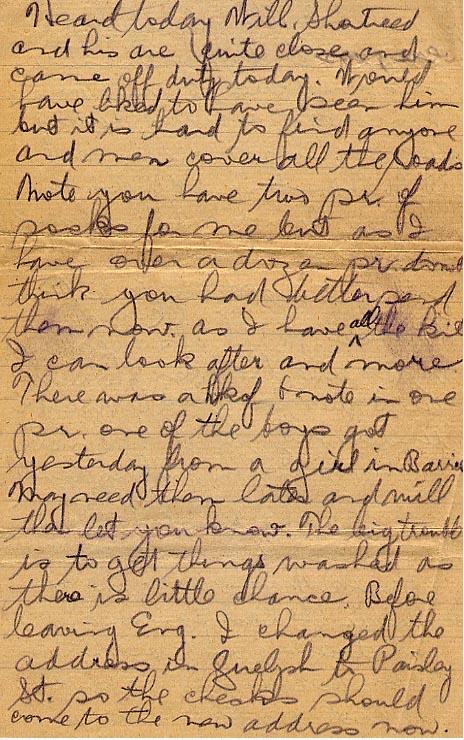 Heard today Will. Shortreed
and his are quite close and
came off duty today. Would
have liked to have seen him
but it is hard to find anyone
and men cover all the roads
Note you have two pr. of
socks for me but as I
have over a dozen pr. dont
think you had better send
them now. as I have all the kit
I can look after and more
There was a hkcf & note in one
pr. one of the boys got
yesterday from a girl in Barrie
May need them later and will
then let you know. The big trouble
is to get things washed as
there is little chance. Before
leaving Eng. I changed the
address in Guelph to Paisley
St. so the checks should
come to the new address now.